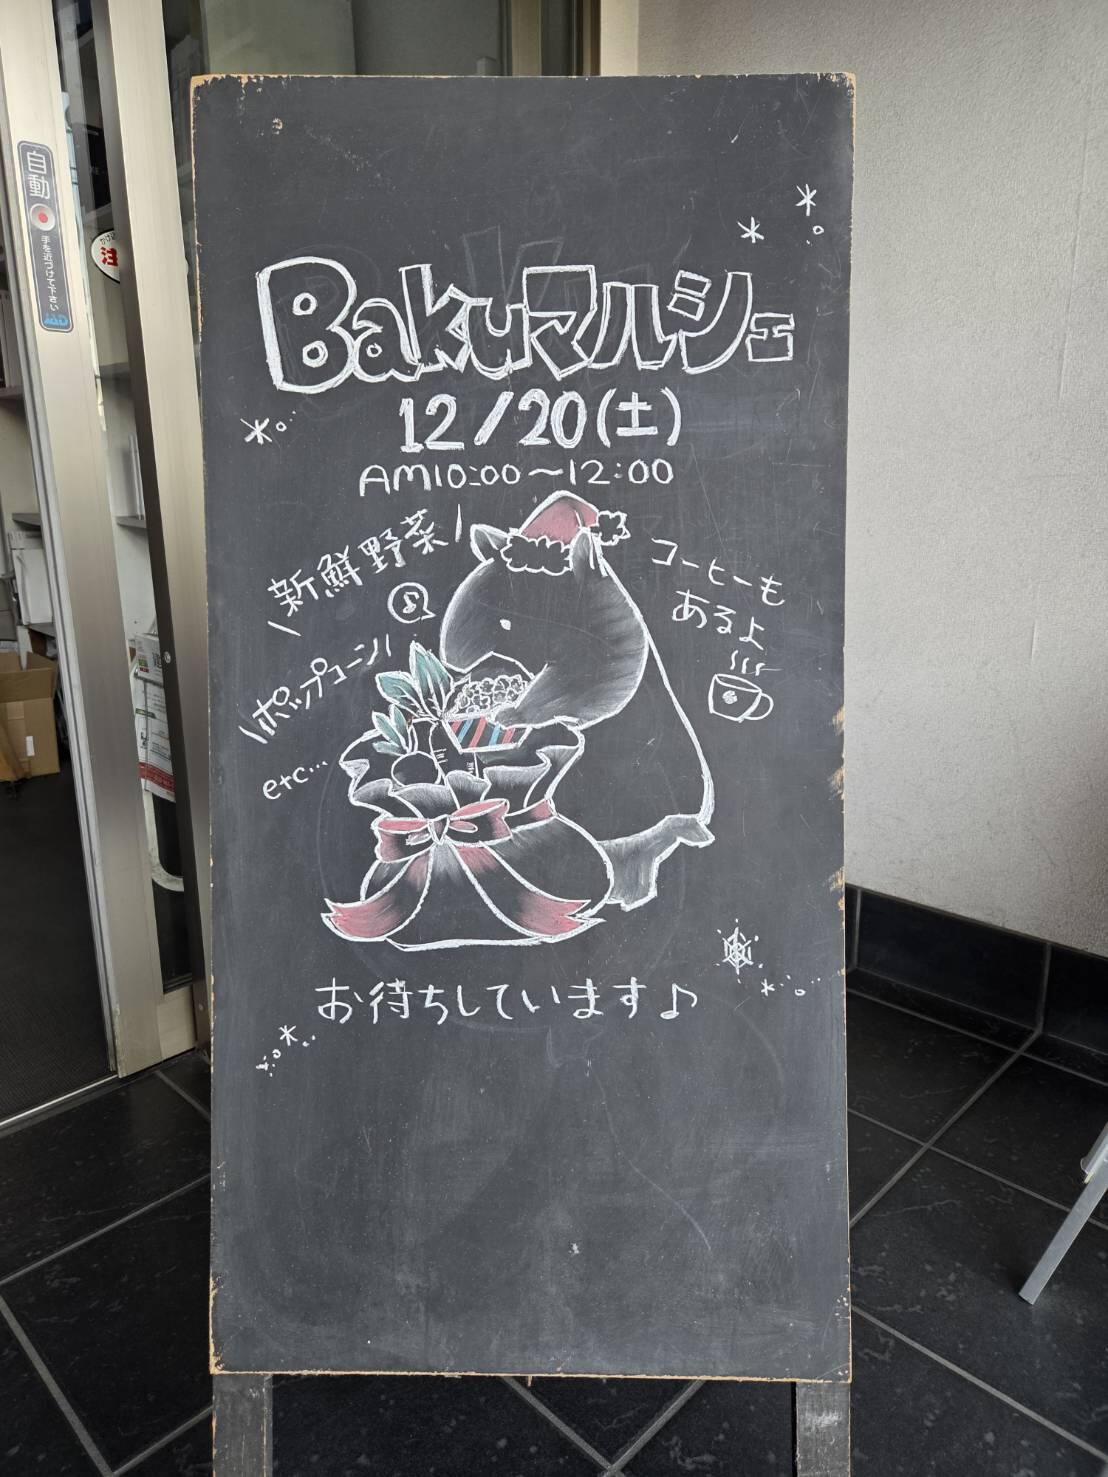 自動
手を近づけて下さい
注
Bakuマルシェ
12/20(土)
AM10:00～12:00
新鮮野菜
コーヒーも
あるよ
ポップコーン
etc...
お待ちしています♪